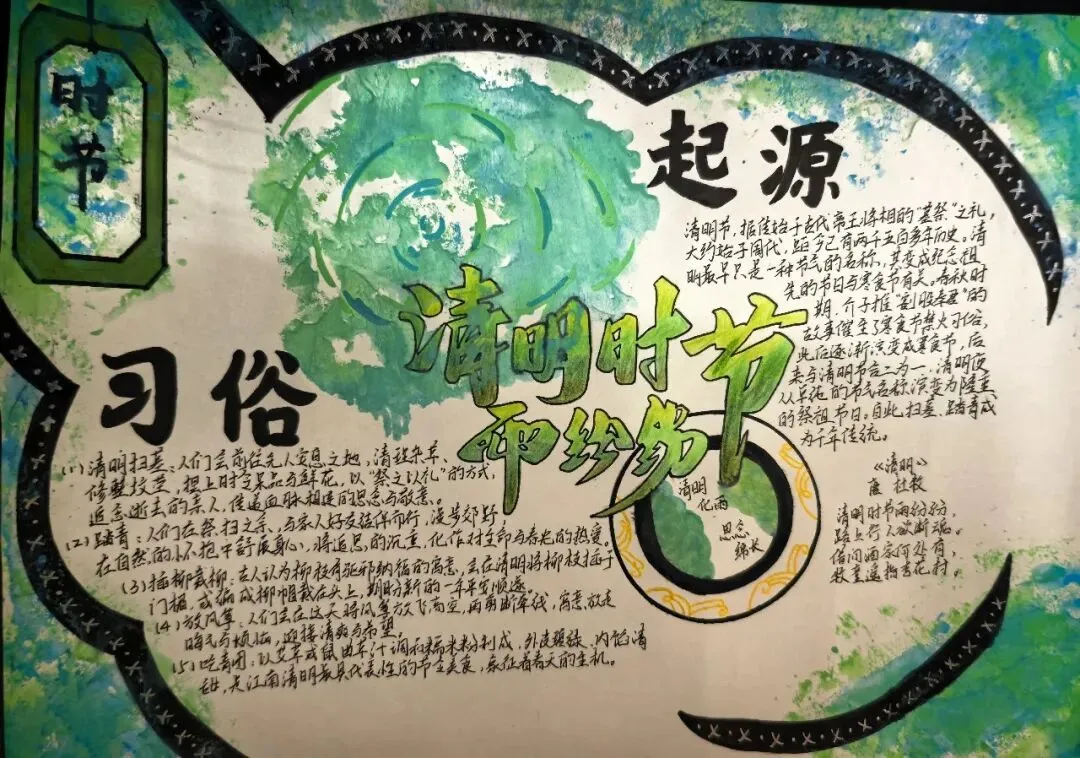 时节
清明时节
雨纷纷
起源
清明节，据传始于古代帝王将相的“墓祭”之礼，
大约始于周代，距今已有两千五百多年历史。清
明最早只是一种节气的名称，其变成纪念祖
先的节日与寒食节有关。春秋时
期，介子推“割股奉君”的
故事催生了寒食节禁火习俗，
此后逐渐演变成寒食节，后
来与清明节合二为一，清明便
从单纯的节气名称演变为隆重
的祭祖节日。自此，扫墓、踏青成
为千年传统。
《清明》
唐 杜牧
清明时节雨纷纷，
路上行人欲断魂。
借问酒家何处有，
牧童遥指杏花村。
清明
化雨
思念
绵长
习俗
(1)清明扫墓：人们会前往先人安息之地，清理杂草、
修整坟茔，摆上时令果品与鲜花，以“祭之以礼”的方式，
追念逝去的亲人，传递血脉相连的思念与敬意。
(2)踏青：人们在祭扫之余，与家人好友结伴而行，漫步郊野，
在自然的怀抱中舒展身心，将追思的沉重，化作对生命与春光的热爱。
(3)插柳戴柳：古人认为柳枝有驱邪纳福的寓意，会在清明将柳枝插于
门楣，或编成柳帽戴在头上，期盼新的一年平安顺遂。
(4)放风筝：人们会在这天将风筝放飞高空，再剪断牵线，寓意放走
晦气与烦恼，迎接清爽与希望
(5)吃青团：以艾草或鼠曲草汁调和糯米粉制成，外皮碧绿、内馅清
甜，是江南清明最具代表性的节令美食，象征着春天的生机。